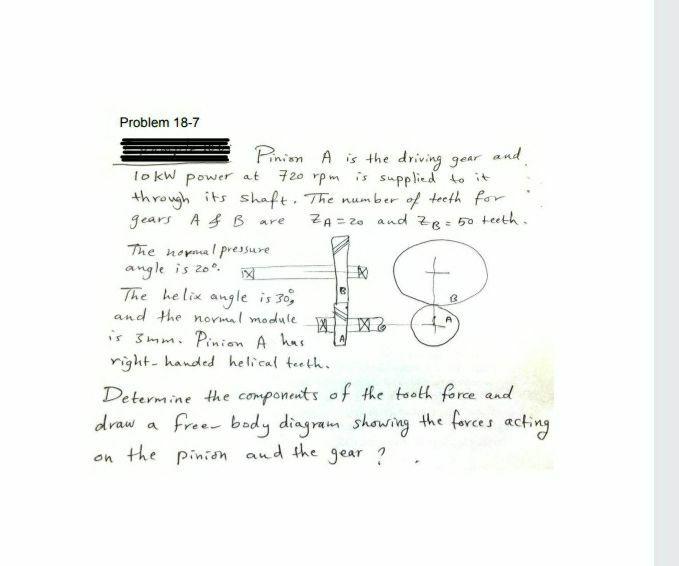 Problem 18-7
Pinion A is the driving gear and
10 kW power at 720 rpm is supplied to it
through its shaft. The number of teeth for
gears A & B are ZA = 20 and ZB = 50 teeth.
The normal pressure
angle is 20°.
The helix angle is 30°,
and the normal module
is 3mm. Pinion A has
right-handed helical teeth.
B
A
B
A
Determine the components of the tooth force and
draw a free-body diagram showing the forces acting
on the pinion and the gear ?